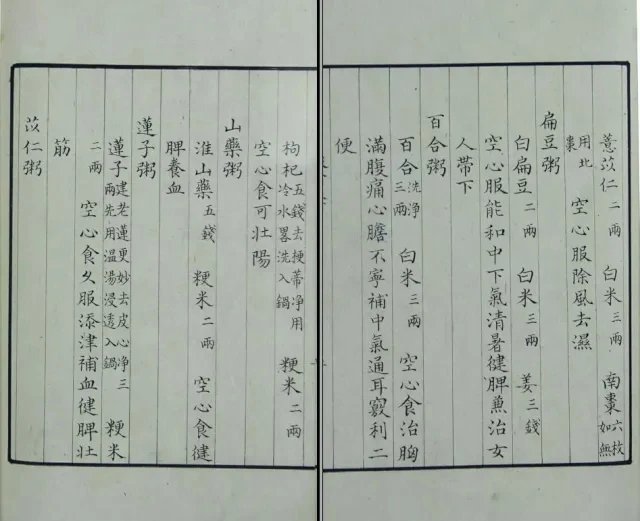 薏苡仁二兩 白米三兩 南棗六枚如無
用北棗 空心服除風去濕
扁豆粥
白扁豆二兩 白米三兩 姜三錢
空心服能和中下氣清暑徤脾兼治女
人帶下
百合粥
百合洗淨三兩 白米三兩 空心食治胸
滿腹痛心膽不寧補中氣通耳竅利二
便
枸杞五錢去梗蒂净用冷水畧洗入鍋 粳米二兩
空心食可壯陽
山藥粥
淮山藥五錢 粳米二兩 空心食徤
脾養血
蓮子粥
蓮子建老蓮更妙去皮心净三兩先用溫湯浸透入鍋 粳米
二兩 空心食久服添津補血徤脾壯
筋
苡仁粥